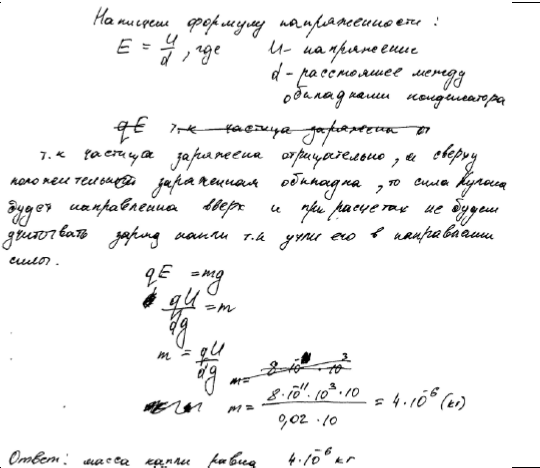 Напишем формулу напряженности:
E = U/d, где U - напряжение
d - расстояние между
обкладками конденсатора
qE т.к частица заряжена от
т.к частица заряжена отрицательно, а сверху
положительной заряженная обкладка, то сила Кулона
будет направлена вверх и при расчетах не будем
учитовать заряд капли т.к учли его в направлении
силы.
qE = mg
qU/dg = m
m = qU/dg
m = (8·10^-11·10^3·10)/(0,02·10) = 4·10^-6 (кг)
Ответ: масса капли равна 4·10^-6 кг